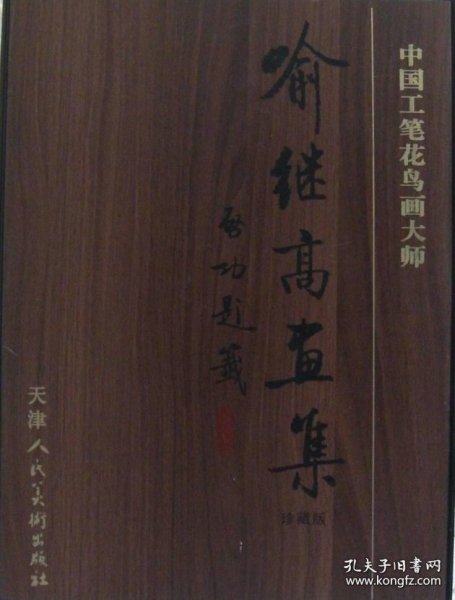 中国工笔花鸟画大师
喻继高画集
珍藏版
启功题签
天津人民美術出版社
孔夫子旧书网
www.kongfz.com